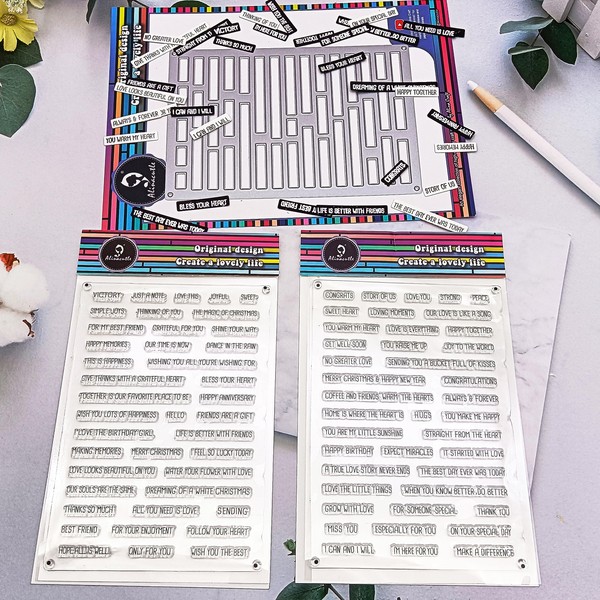 Original design
Create a lovely life
Alinacutle
THINKING OF YOU
NO GREATER LOVE
VICTORY
THANKS SO MUCH
I'M HERE FOR YOU
FOR SOMEONE SPECIAL
ALL YOU NEED IS LOVE
BLESS YOUR HEART
FRIENDS ARE A GIFT
LOVE LOOKS BEAUTIFUL ON YOU
HAPPY TOGETHER
ALWAYS & FOREVER
I CAN AND I WILL
I CAN AND I WILL
YOU WARM MY HEART
HAPPY MEMORIES
CONGRATS
STORY OF US
BLESS YOUR HEART
LIFE IS BETTER WITH FRIENDS
THE BEST DAY EVER WAS TODAY
THE BEST DAY EVER WAS TODAY
Alinacutle
Original design
Create a lovely life
VICTORY JUST A NOTE LOVE THIS JOYFUL SWEET
SIMPLE JOYS THINKING OF YOU THE MAGIC OF CHRISTMAS
FOR MY BEST FRIEND GRATEFUL FOR YOU SHINE YOUR WAY
HAPPY MEMORIES OUR TIME IS NOW DANCE IN THE RAIN
THIS IS HAPPINESS WISHING YOU ALL YOU'RE WISHING FOR
GIVE THANKS WITH A GRATEFUL HEART BLESS YOUR HEART
TOGETHER IS OUR FAVORITE PLACE TO BE HAPPY ANNIVERSARY
WISH YOU LOTS OF HAPPINESS HELLO FRIENDS ARE A GIFT
I LOVE THE BIRTHDAY GIRL LIFE IS BETTER WITH FRIENDS
MAKING MEMORIES MERRY CHRISTMAS I FEEL SO LUCKY TODAY
LOVE LOOKS BEAUTIFUL ON YOU WATER YOUR FLOWER WITH LOVE
OUR SOULS ARE THE SAME DREAMING OF A WHITE CHRISTMAS
THANKS SO MUCH ALL YOU NEED IS LOVE SENDING
BEST FRIEND FOR YOUR ENJOYMENT FOLLOW YOUR HEART
HOPE ALL IS WELL ONLY FOR YOU WISH YOU THE BEST
Alinacutle
Original design
Create a lovely life
CONGRATS STORY OF US LOVE YOU STRONG PEACE
SWEET HEART LOVING MOMENTS OUR LOVE IS LIKE A SONG
YOU WARM MY HEART LOVE IS EVERYTHING HAPPY TOGETHER
GET WELL SOON YOU RAISE ME UP JOY TO THE WORLD
NO GREATER LOVE SENDING YOU A BUCKET FULL OF KISSES
MERRY CHRISTMAS & HAPPY NEW YEAR CONGRATULATIONS
COFFEE AND FRIENDS WARM THE HEARTS ALWAYS & FOREVER
HOME IS WHERE THE HEART IS HUGS YOU MAKE ME HAPPY
YOU ARE MY LITTLE SUNSHINE STRAIGHT FROM THE HEART
HAPPY BIRTHDAY EXPECT MIRACLES IT STARTED WITH LOVE
A TRUE LOVE STORY NEVER ENDS THE BEST DAY EVER WAS TODAY
LOVE THE LITTLE THINGS WHEN YOU KNOW BETTER, DO BETTER
GROW WITH LOVE FOR SOMEONE SPECIAL THANK YOU
I MISS YOU ESPECIALLY FOR YOU ON YOUR SPECIAL DAY
I CAN AND I WILL I'M HERE FOR YOU MAKE A DIFFERENCE